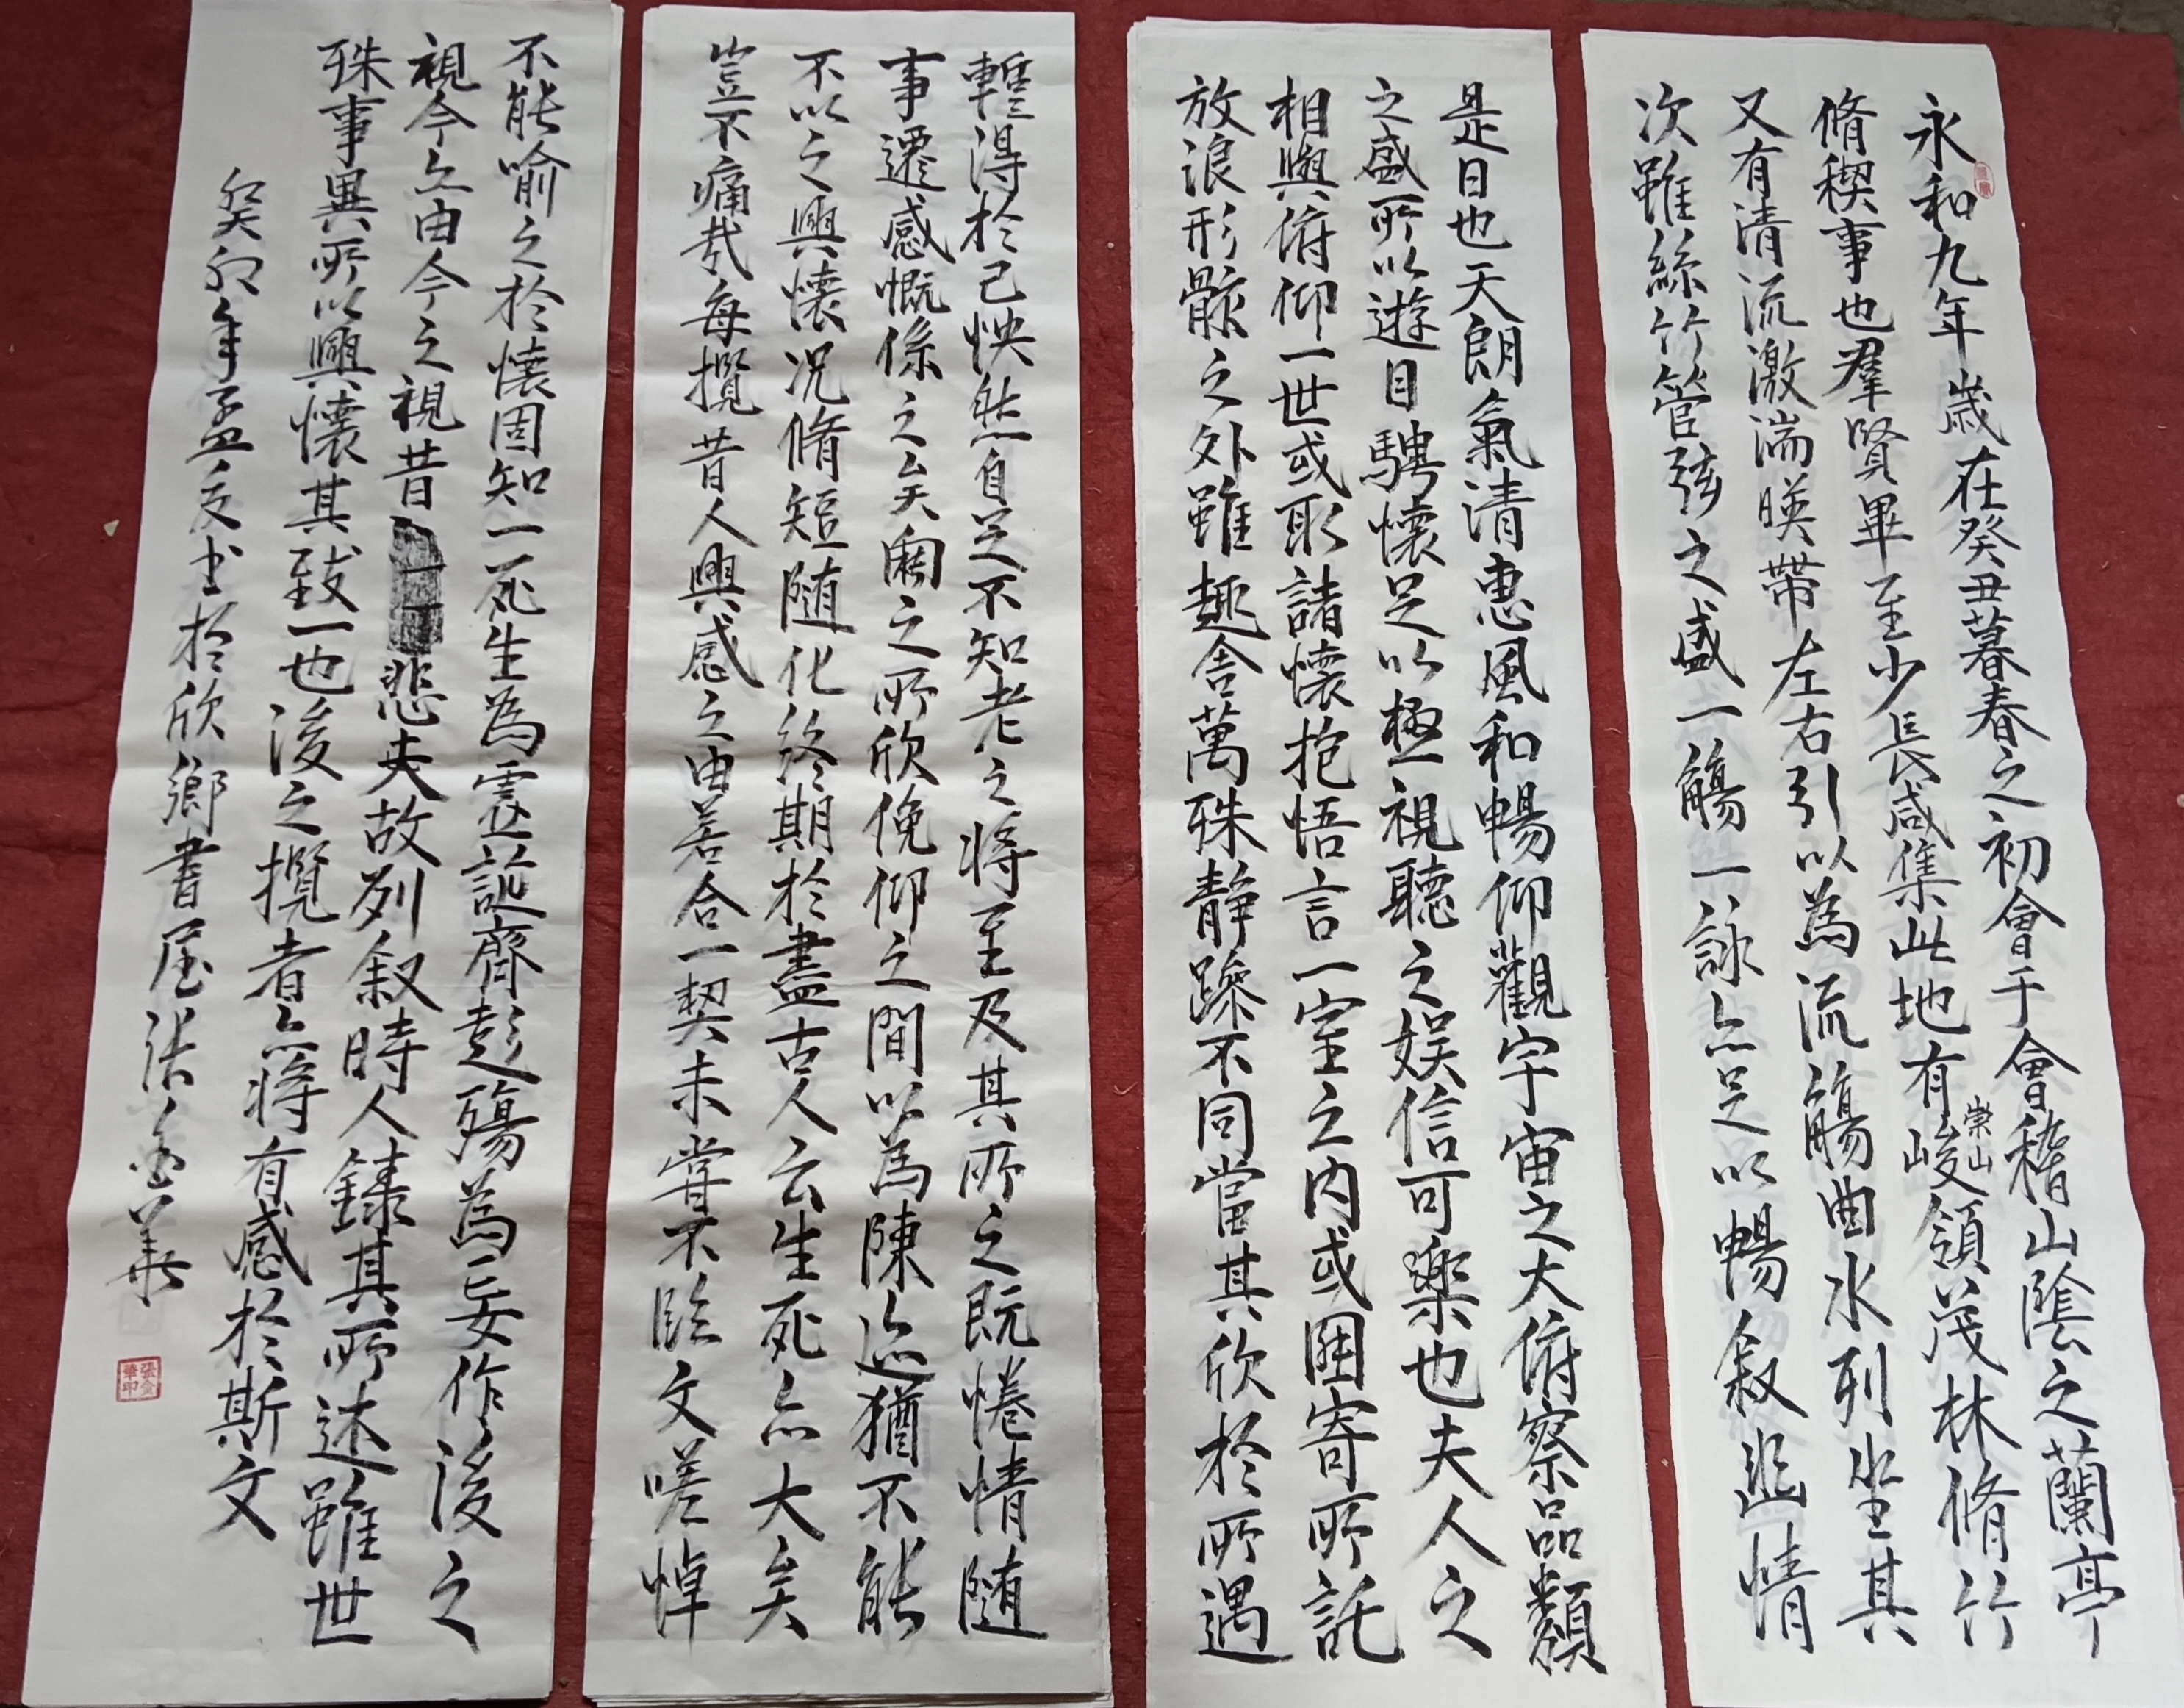 永和九年歲在癸丑暮春之初會于會稽山陰之蘭亭
脩稧事也羣賢畢至少長咸集此地有崇山峻領茂林脩竹
又有清流激湍暎帶左右引以為流觴曲水列坐其
次雖絲竹管弦之盛一觴一詠亦足以暢叙幽情
是日也天朗氣清惠風和暢仰觀宇宙之大俯察品類
之盛所以遊目騁懷足以極視聽之娱信可樂也夫人之
相與俯仰一世或取諸懷抱悟言一室之内或因寄所託
放浪形骸之外雖趣舍萬殊静躁不同當其欣於所遇
暫得於己怏然自足不知老之將至及其所之既惓情隨
事遷感慨係之矣向之所欣俛仰之間以為陳迹猶不能
不以之興懷况脩短随化終期於盡古人云生死亦大矣
豈不痛哉每攬昔人興感之由若合一契未嘗不臨文嗟悼
不能喻之於懷固知一死生為虛誕齊彭殤為妄作後之
視今亦由今之視昔悲夫故列叙時人錄其所述雖世
殊事異所以興懷其致一也後之攬者亦將有感於斯文
癸卯年孟夏书於欣鄉書屋張金華
張金華印